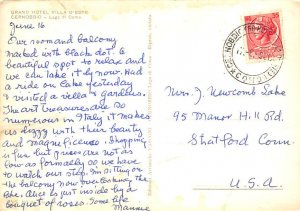 GRAND HOTEL VILLA D'ESTE
CERNOBBIO - Lago di Como
June 16
Our room and balcony
marked with black dot. A
beautiful spot to relax and
we can take it by now. Had
a ride on Lake yesterday
& visited a villa & gardens.
The art treasures are so
numerous in Italy it makes
us dizzy with their beauty
and magnificence. Shopping
is fun but prices are not as
low as formally so we have
to watch our step. I'm sitting on
the balcony now overlooking the
Lake. Alice is just inside by a
bouquet of roses. Some life
Mrs. J. Newcomb Lake
95 Manor Hill Rd.
Stratford Conn
U.S.A.